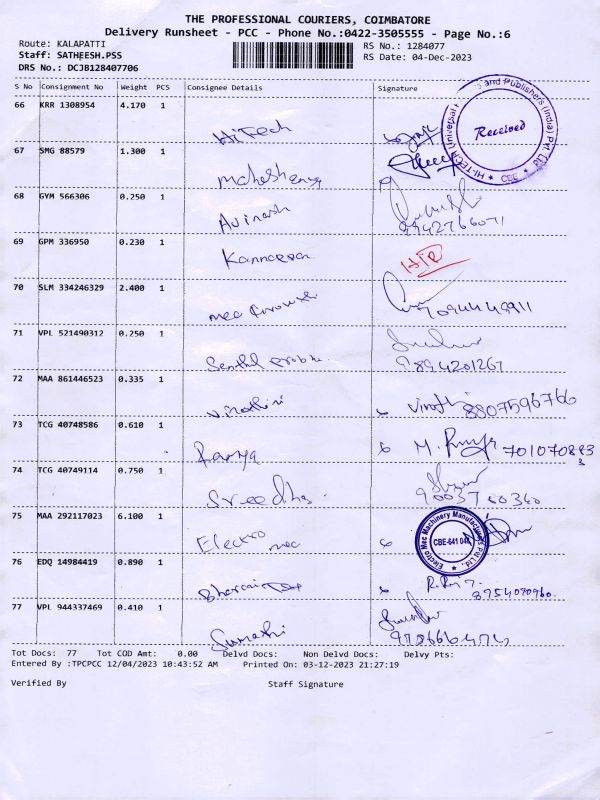 THE PROFESSIONAL COURIERS, COIMBATORE
Delivery Runsheet - PCC - Phone No.:0422-3505555 - Page No.:6
Route: KALAPATTI
RS No.: 1284077
Staff: SATHEESH.PSS
RS Date: 04-Dec-2023
DRS No.: DCJB128407706
S No Consignment No Weight PCS Consignee Details Signature
66 KRR 1308954 4.170 1
Hitech
Received
HI-TECH Universal and Publishers (India) Pvt. Ltd.
CBE
67 SMG 88579 1.300 1
68 GYM 566306 0.250 1
Avinash
9942766071
69 GPM 336950 0.230 1
70 SLM 334246329 2.400 1
71 VPL 521490312 0.250 1
9894201267
72 MAA 861446523 0.335 1
8807596766
73 TCG 40748586 0.610 1
Ramya
74 TCG 40749114 0.750 1
Sreedha
75 MAA 292117023 6.100 1
Electro mec
Electro Mec Machinery Manufacturers Pvt Ltd.
CBE-641 048
76 EDQ 14984419 0.890 1
8954070960
77 VPL 944337469 0.410 1
Sumathi
Tot Docs: 77 Tot COD Amt: 0.00 Delvd Docs: Non Delvd Docs: Delvy Pts:
Entered By :TPCPCC 12/04/2023 10:43:52 AM Printed On: 03-12-2023 21:27:19
Verified By Staff Signature